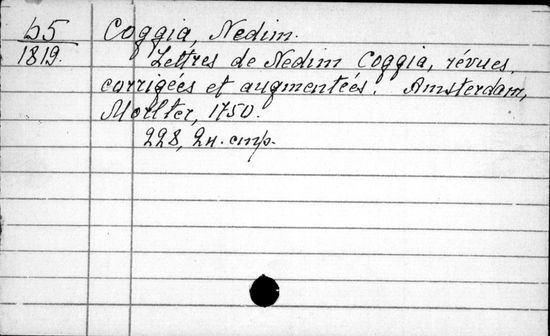 b5
1819.
Coggia, Nedim.
Lettres de Nedim Coggia, révues,
corrigées et augmentéés. Amsterdam,
Mortier, 1750.
228, 2н. стр.